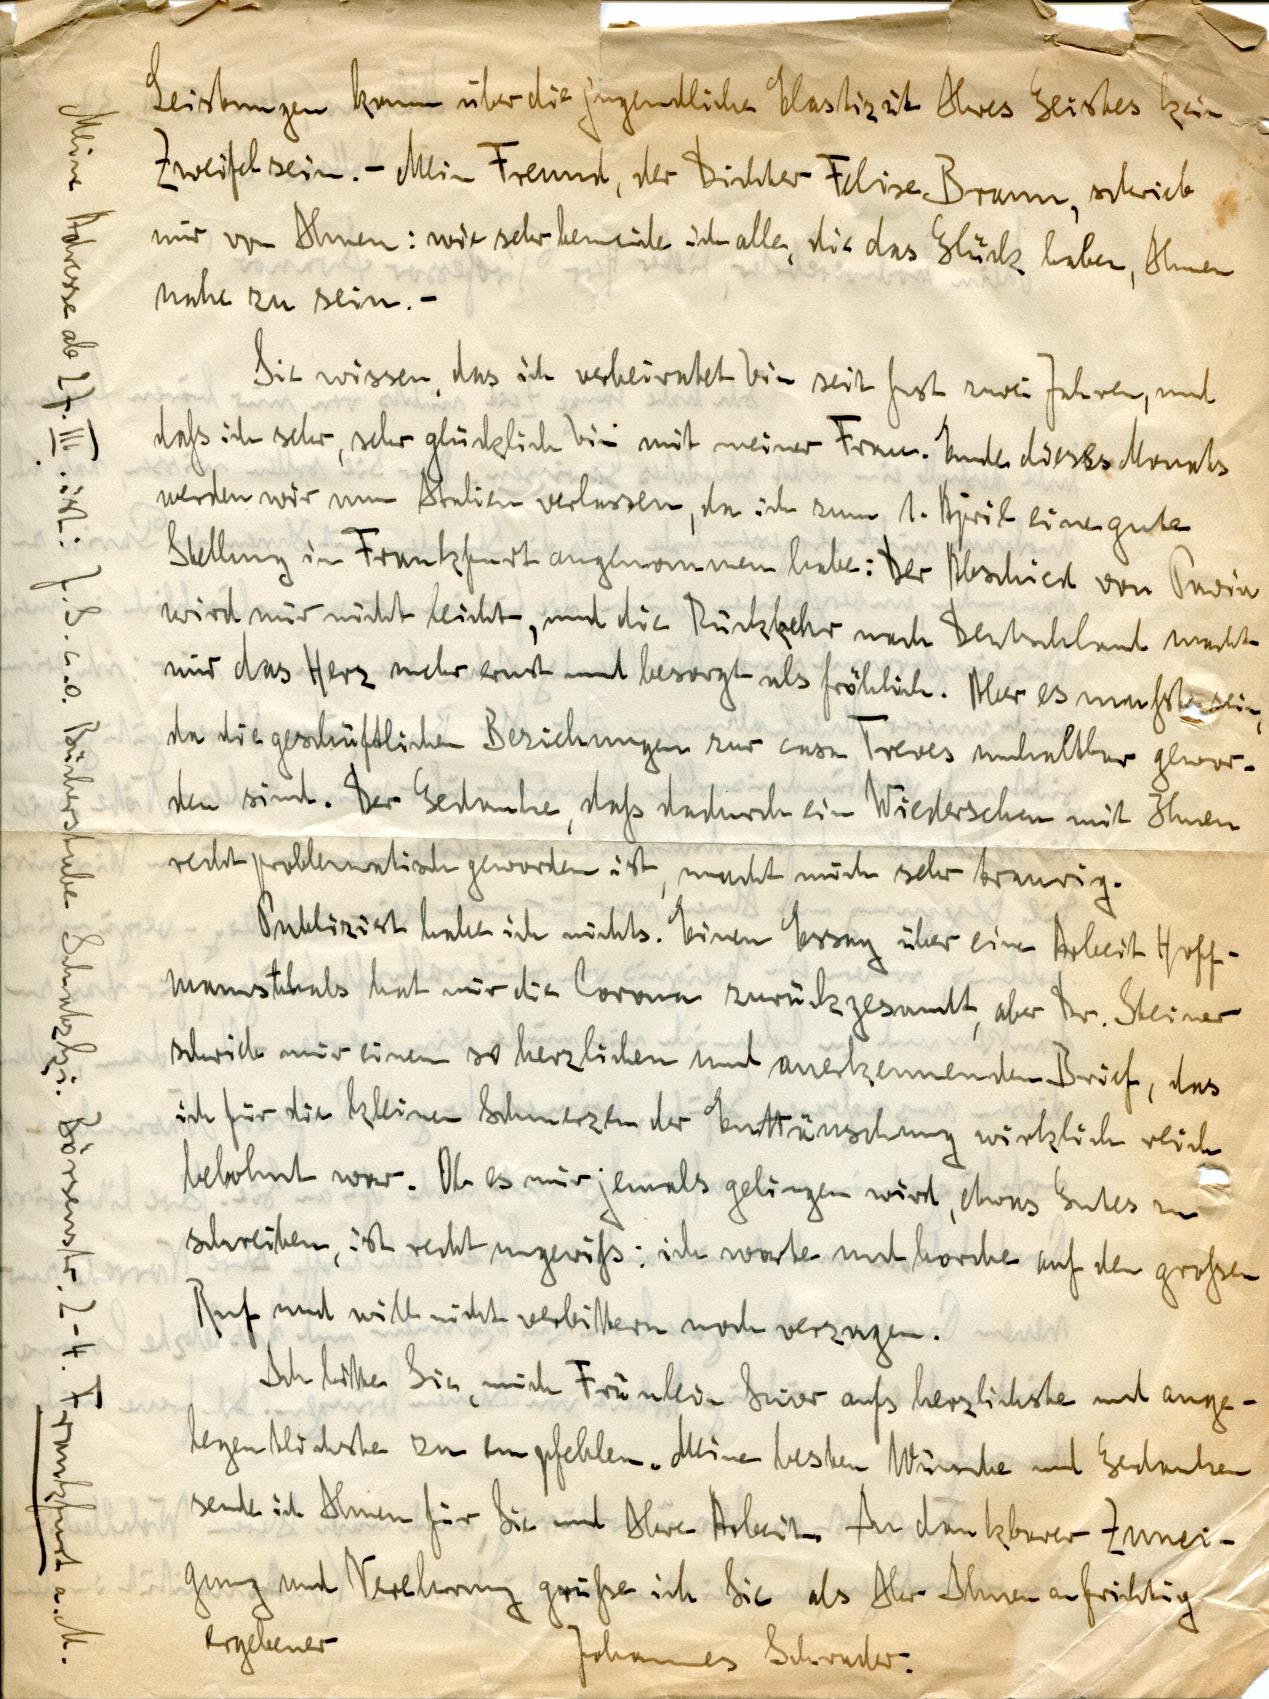 Leistungen kann über die jugendliche Elastizität Ihres Geistes kein
Zweifel sein. – Mein Freund, der Dichter Felix Braun, schrieb
mir von Ihnen: wie sehr beneide ich alle, die das Glück haben, Ihnen
nahe zu sein. –
Sie wissen, das ich verheiratet bin seit fast zwei Jahren, und
daß ich sehr, sehr glücklich bin mit meiner Frau. Ende dieses Monats
werden wir nun Italien verlassen, da ich zum 1. April eine gute
Stellung in Frankfurt angenommen habe: Der Abschied von Pavia
wird mir nicht leicht, und die Rückkehr nach Deutschland macht
mir das Herz mehr ernst und besorgt als fröhlich. Aber es mußte sein,
da die geschäftlichen Beziehungen zur casa Treves unhaltbar gewor-
den sind. Der Gedanke, daß dadurch ein Wiedersehen mit Ihnen
recht problematisch geworden ist, macht mich sehr traurig.
Publiziert habe ich nichts. Einen Essay über eine Arbeit Hoff-
mannsthals hat mir die Corona zurückgesandt, aber Dr. Steiner
schrieb mir einen so herzlichen und anerkennenden Brief, das
ich für die kleinen Schmerzen der Enttäuschung wirklich reich
belohnt war. Ob es mir jemals gelingen wird, etwas Gutes zu
schreiben, ist recht ungewiß: ich warte und horche auf den großen
Ruf und will nicht verbittern noch verzagen.
Ich bitte Sie, mich Fräulein aufs herzlichste und ange-
legentlichste zu empfehlen. Meine besten Wünsche und Gedanken
sende ich Ihnen für Sie und Ihre Arbeit. In dankbarer Zunei-
gung und Verehrung grüße ich Sie als Ihr Ihnen aufrichtig
ergebener Johannes Schrader.
Meine Adresse ab 27. III. ist: J. S. c. o. Bücherstube Schatzki. Börsenstr. 2-4. Frankfurt a. M.